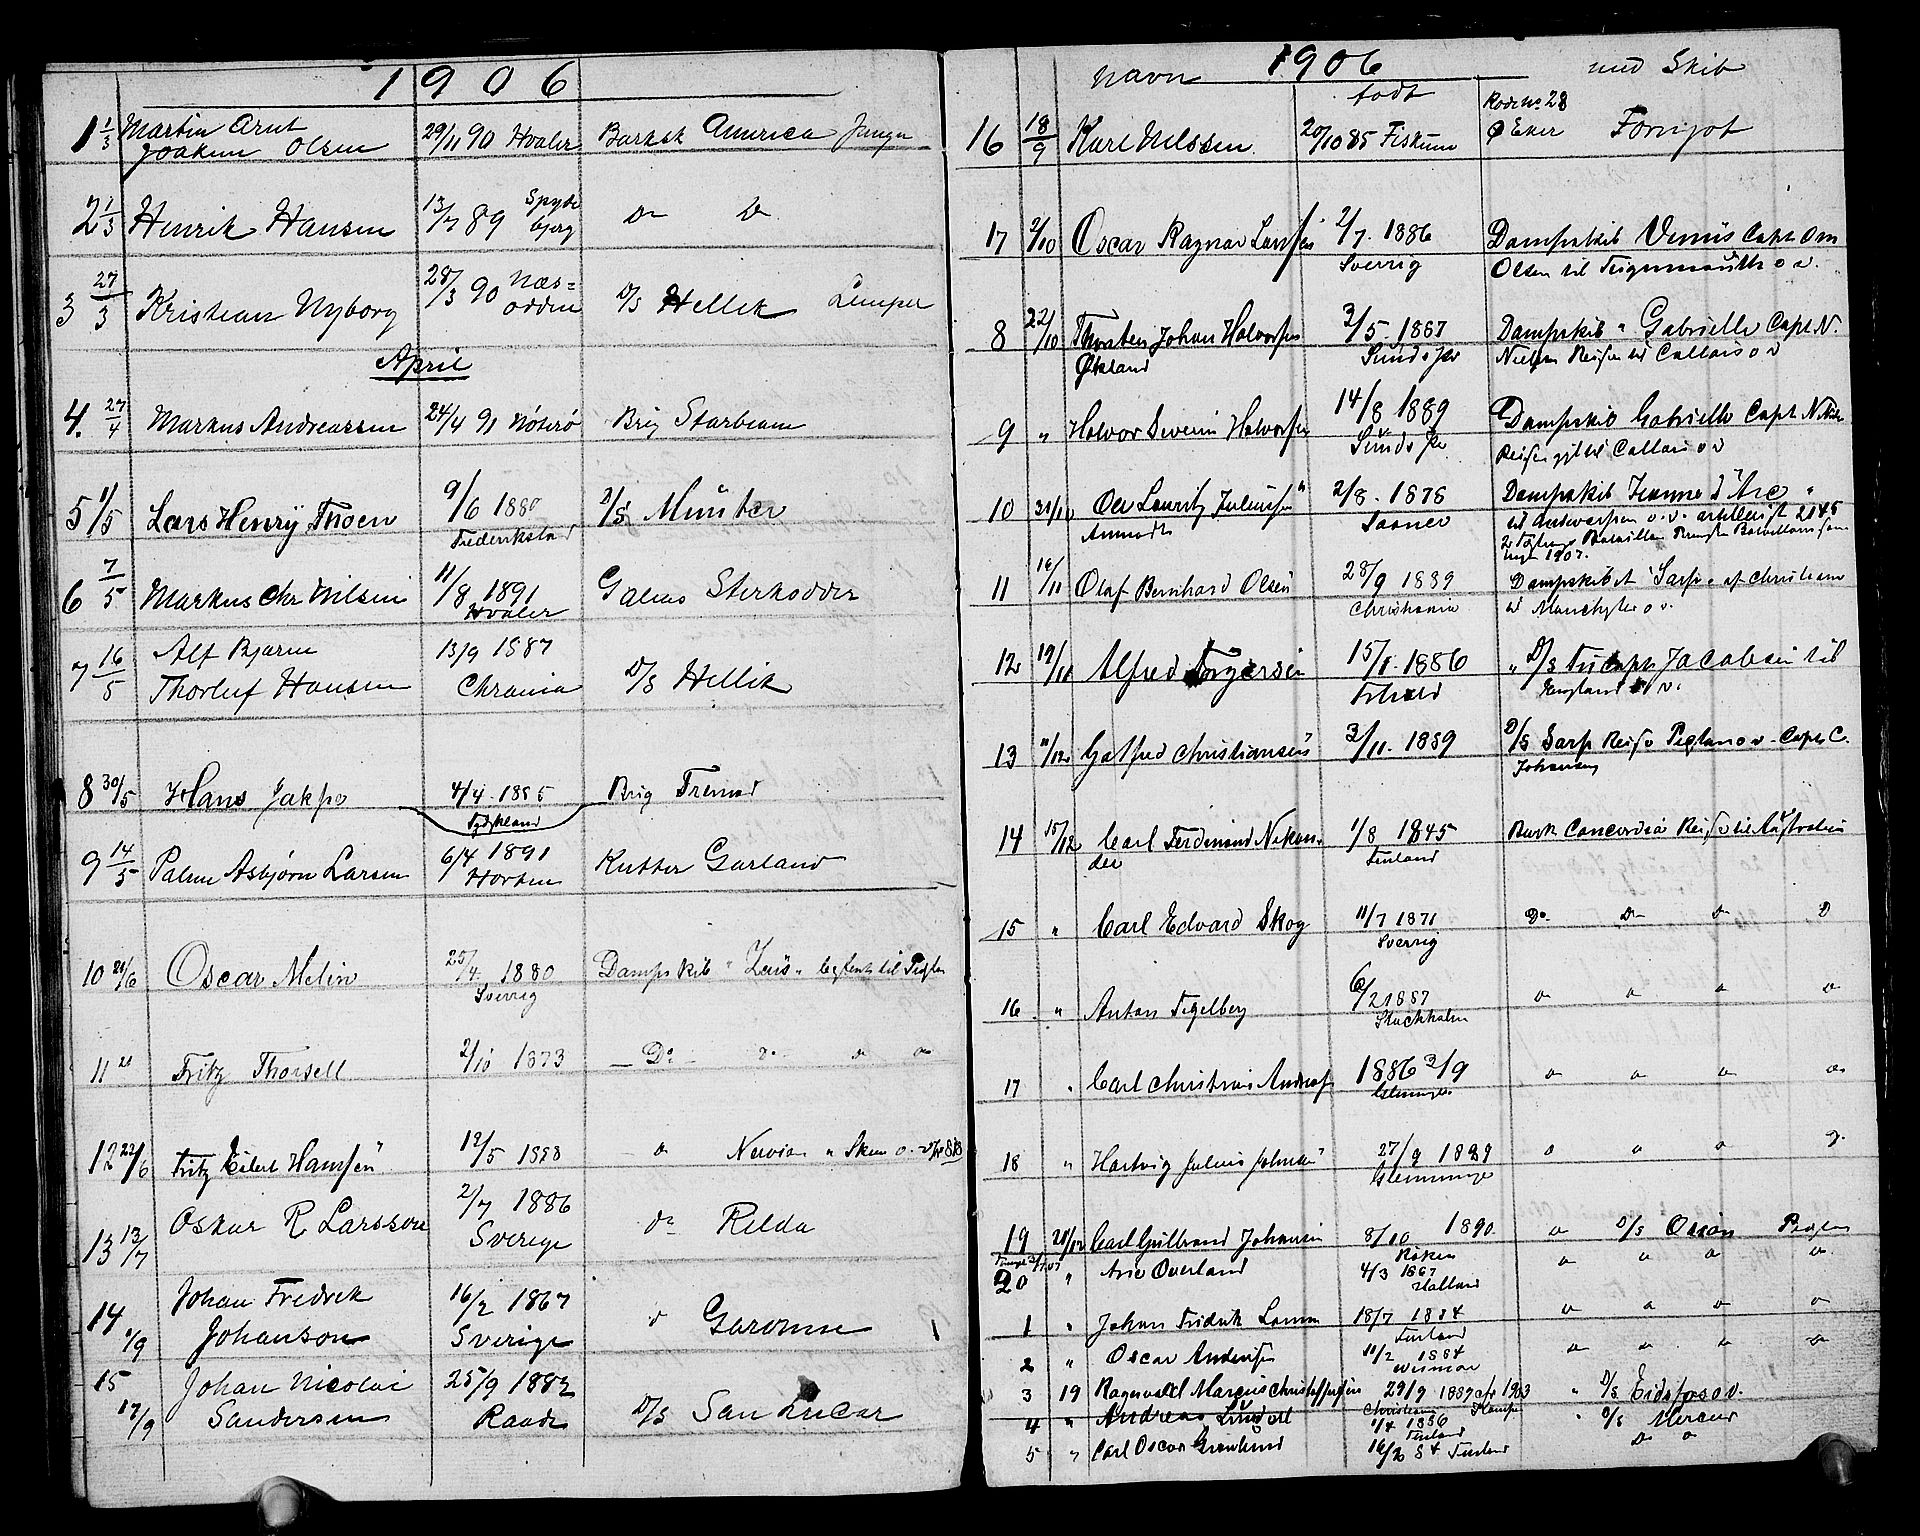 1906
1 1/3 Martin Arnt
Joakim Olsen 29/11 90 Hvaler Barksk America Jungm
2 1/3 Henrik Hansen 13/7 89 Spyde
bjerg Do Do
3 27/3 Kristian Nyborg 28/3 90 Næs=
odden D/S Hellik Lemper
April
4. 27/4 Markus Andreassen 24/4 91 Nøterø Brig Starbeam
5 1/5 Lars Henry Thoen 9/6 1880
Frederikstad D/S Münster
6 7/5 Markus Chr Nilsen 11/8 1891
Hvaler Galeas Sterkodder
7 16/5 Alf Bjarne
Thorluf Hansen 13/9 1887
Chrania D/S Hellik
8 30/5 Hans 4/4 - 1885
Tydskland Brig
9 14/5 Palme Asbjørn Larsen 6/4 1891
Horten Kutter Garland
10 21/6 Oscar Melin 25/4 1880
Sverrig Dampskib " Zeüs "
11 21 Fritz Thorsell 2/10 1873 Do
12 22/6 Fritz Eilert Hansen 12/5 1888
13 13/7 Oskar R Larsson 2/7 1886
Sverige Do Relda
14 1/9 Johan Fredrek
Johanson 16/2 1867
Sverige Do Garonne
15 17/9 Johan Nicolai
Sandersen 25/9 1882
Raade D/S San Lucar
1906
Navn født med Skib
16 18/9 Karl Nilssen 20/10 85 Fiskum Rode No. 28
Ø Eker Fornjot
17 2/10 Oscar Ragnar Larssen 2/7. 1886
Sverrig Dampskib Venüs Capt Om
Olsen til Teignmouth o v.
8 22/10 Thorsten Johan Halvorsen
Økland 3/5 1887 Dampskib " Gabrielle Capt N.
Nielsen Reise til Callais o v
9 " Halvor Severin Halvorsen 14/8 1889 Dampskib Gabrielle Capt N
til Callais o v
10 31/10 Ole Lauritz Juliussen
2/8 - 1878 Dampskib Jeanne d'Arc "
til Antwerpen o. v. 2145
1907.
11 16/11 Olaf Bernhard Olsen 28/9 1889
Christiania Dampskibet Sarp af Christiania
til o v.
12 19/11 Alfred Torgersen 15/1. 1886 " D/S Capt Jacobsen til
England o v.
13 11/12 Gotfred Christiansen 3/11. 1889 D/S Sarp Reise o v. Capt C.
Johansen
14 15/12 Carl Ferdinand Nikan-
der 1/8 1845
Finland Bark Concordia Reise til Australien
15 " Carl Edvard Skog 11/7 1871
Sverrig Do Do Do D
16 " Anton Tegelberg 6/2 1887
Stockholm
17 " Carl Christian 1886 3/9
Glemminge
18 " Hartvig Julius Johansen 27/9 1889
Glemminge
19 21/12 Carl Gulbrand Johansen 8/10 1890.
Røken D/S Ossian
20 " Are Overland 4/3 1867
1 " Johan Fredrik 18/7 1884
Finland
2 " Oscar Andersen 11/2 1884
Wismar
3 19 Ragnvald Marcus Christoffersen 29/9 1889
Christiania " D/S Eidsfos o v.
4 " Andreas 1/4 1886
Finland " D/S Mercur
5 " Carl Oscar Grønlund 16/2 84 Finland